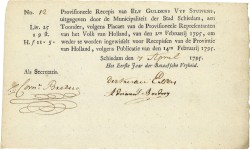 No. 12
Liv. 25
29 ſt.
H. f 11-5-
Provisioneele Recepis van ELF GULDENS VYF STUIVERS,
uitgegeven door de Municipaliteit der Stad Schiedam, aan
Toonder, volgens Placaet van de Provisioneele Repræsentanten
van het Volk van Holland, van den 2den February 1795, om
weder te worden ingewisselt voor Recepissen van de Provintie
van Holland, volgens Publicatie van den 14den February 1795.
Schiedam den 7 April 1795.
Het Eerste Jaar der Bataafsche Vryheid.
Als Secretaris.